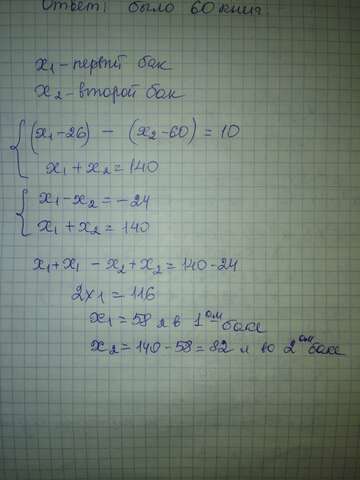 Ответ: было 60 книг.
x₁ - первый бак
x₂ - второй бак
{ (x₁-26) - (x₂-60) = 10
x₁ + x₂ = 140
{ x₁ - x₂ = -24
x₁ + x₂ = 140
x₁+x₁ - x₂+x₂ = 140-24
2x₁ = 116
x₁ = 58 л в 1ᵒᵐ баке
x₂ = 140 - 58 = 82 л во 2ᵒᵐ баке